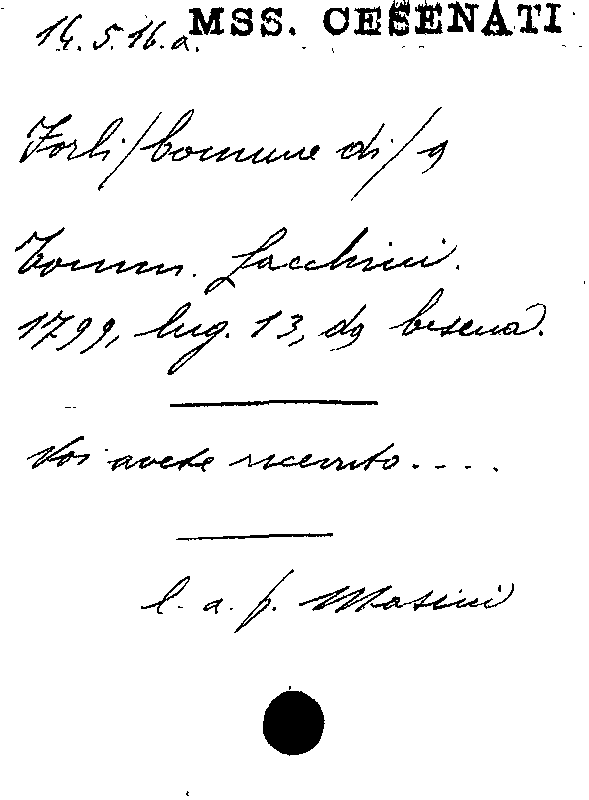 MSS. CESENATI
14.5.16.a.
Forlì/Comune di/a
Comm. Lacchini.
1799, lug. 13, da Cesena.
Voi avete ricevuto....
l. a. f. Masini